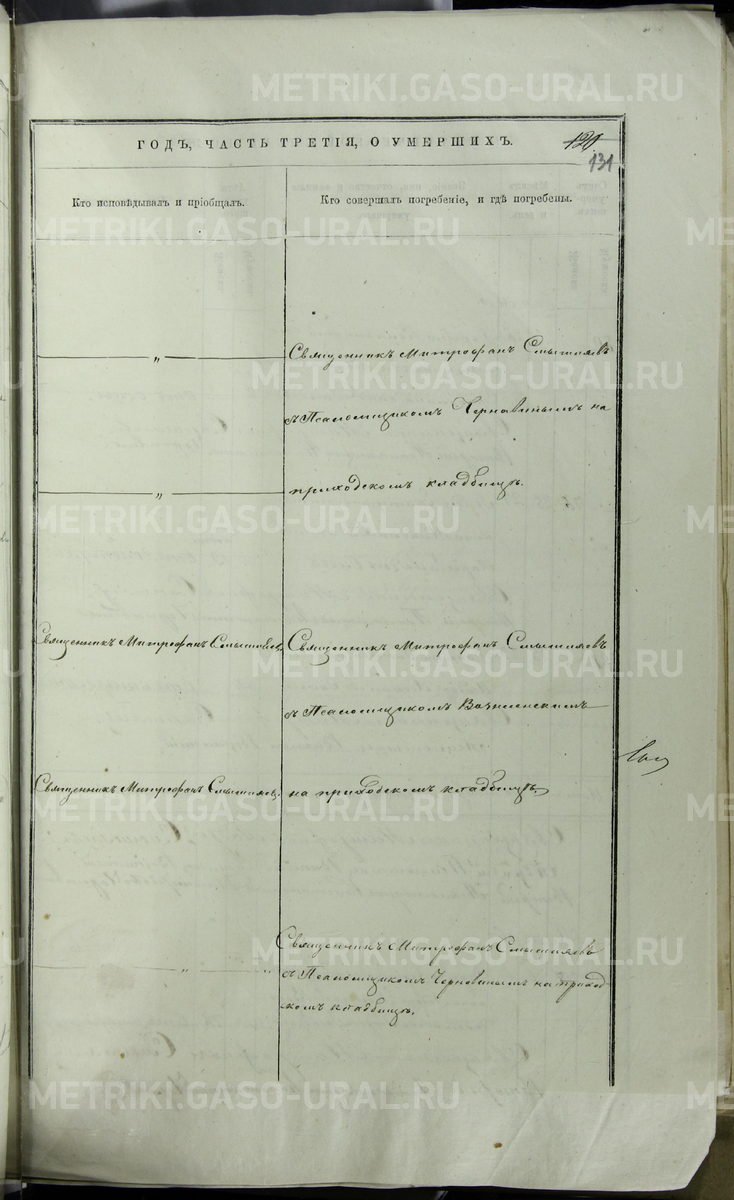 METRIKI.GASO-URAL.RU
ГОДЪ, ЧАСТЬ ТРЕТІЯ, О УМЕРШИХЪ.
131
Кто исповѣдывалъ и пріобщалъ.
Кто совершалъ погребеніе, и гдѣ погребены.
„
Священникъ Митрофанъ Смышляевъ
съ Псаломщикомъ Чернавинымъ на
„
приходскомъ кладбищѣ.
Священникъ Митрофанъ Смышляевъ.
Священникъ Митрофанъ Смышляевъ
съ Псаломщикомъ Вознесенскимъ
Священникъ Митрофанъ Смышляевъ.
на приходскомъ кладбищѣ.
Священникъ Митрофанъ Смышляевъ
„ „
съ Псаломщикомъ Чернавинымъ на приход
скомъ кладбищѣ.